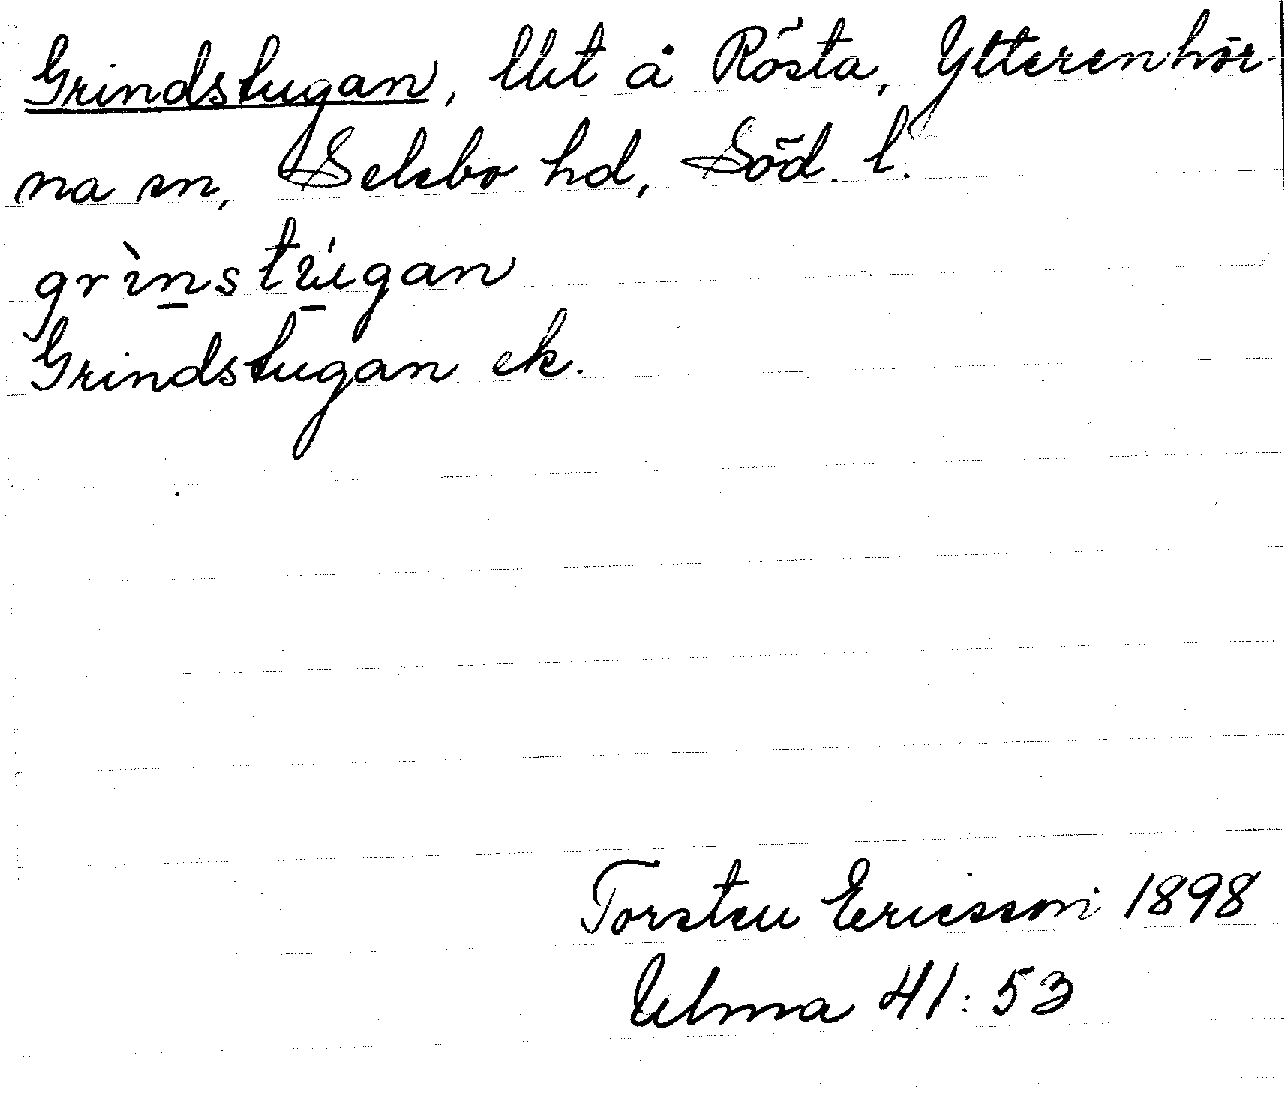 Grindstugan, lht å Rösta, Ytterenhör-
na sn, Selebo hd, Söd. l.
grìnstúgan
Grindstugan ek.
Torsten Ericsson 1898
Ulma 41:53